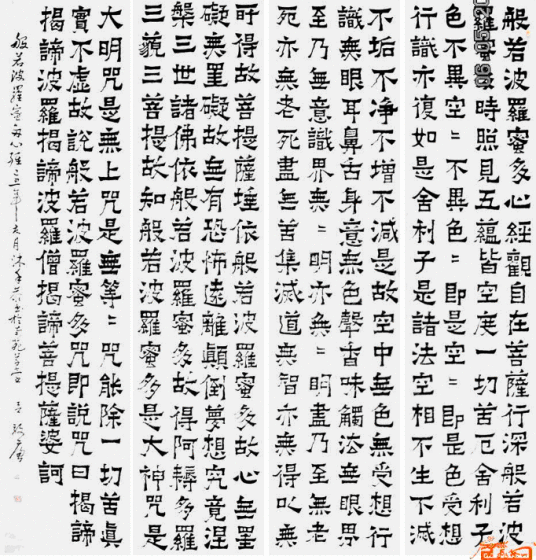 般若波羅蜜多心經觀自在菩薩行深般若波
羅蜜多時照見五蘊皆空度一切苦厄舍利子
色不異空〻不異色〻即是空〻即是色受想
行識亦復如是舍利子是諸法空相不生不滅
不垢不净不增不減是故空中無色無受想行
識無眼耳鼻舌身意無色聲香味觸法無眼界
至乃無意識界無〻明亦無〻〻明盡乃至無老
死亦無老死盡無苦集滅道無智亦無得以無
所得故菩提薩埵依般若波羅蜜多故心無罣
礙無罣礙故無有恐怖遠離顛倒夢想究竟涅
槃三世諸佛依般若波羅蜜多故得阿耨多羅
三藐三菩提故知般若波羅蜜多是大神咒是
大明咒是無上咒是無等〻咒能除一切苦真
實不虛故說般若波羅蜜多咒即說咒曰揭諦
揭諦波羅揭諦波羅僧揭諦菩提薩婆訶
般若波羅蜜多心經